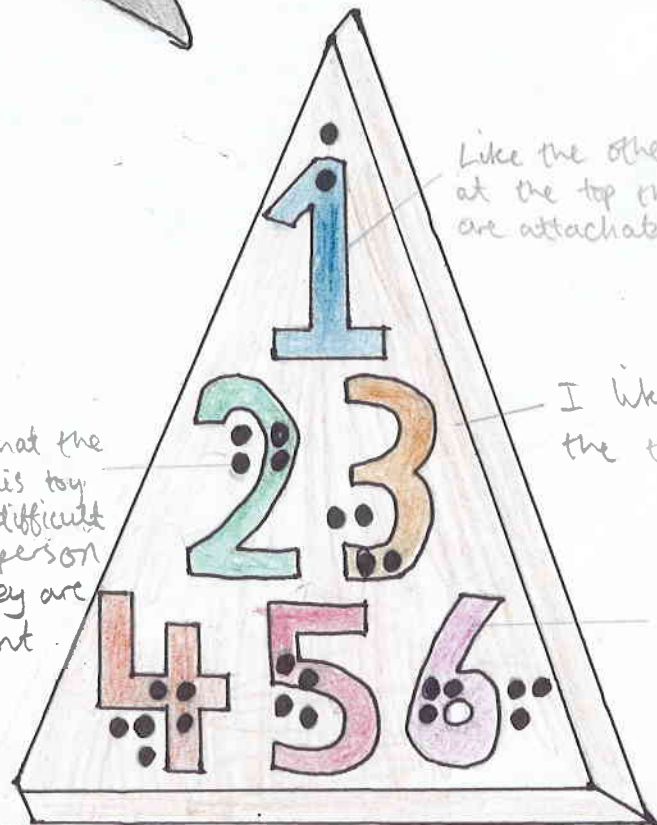 1
Like the othe
at the top th
are attachab
2 3
I lik
the t
hat the
is toy
difficult
person
ey are
nt.
4 5 6